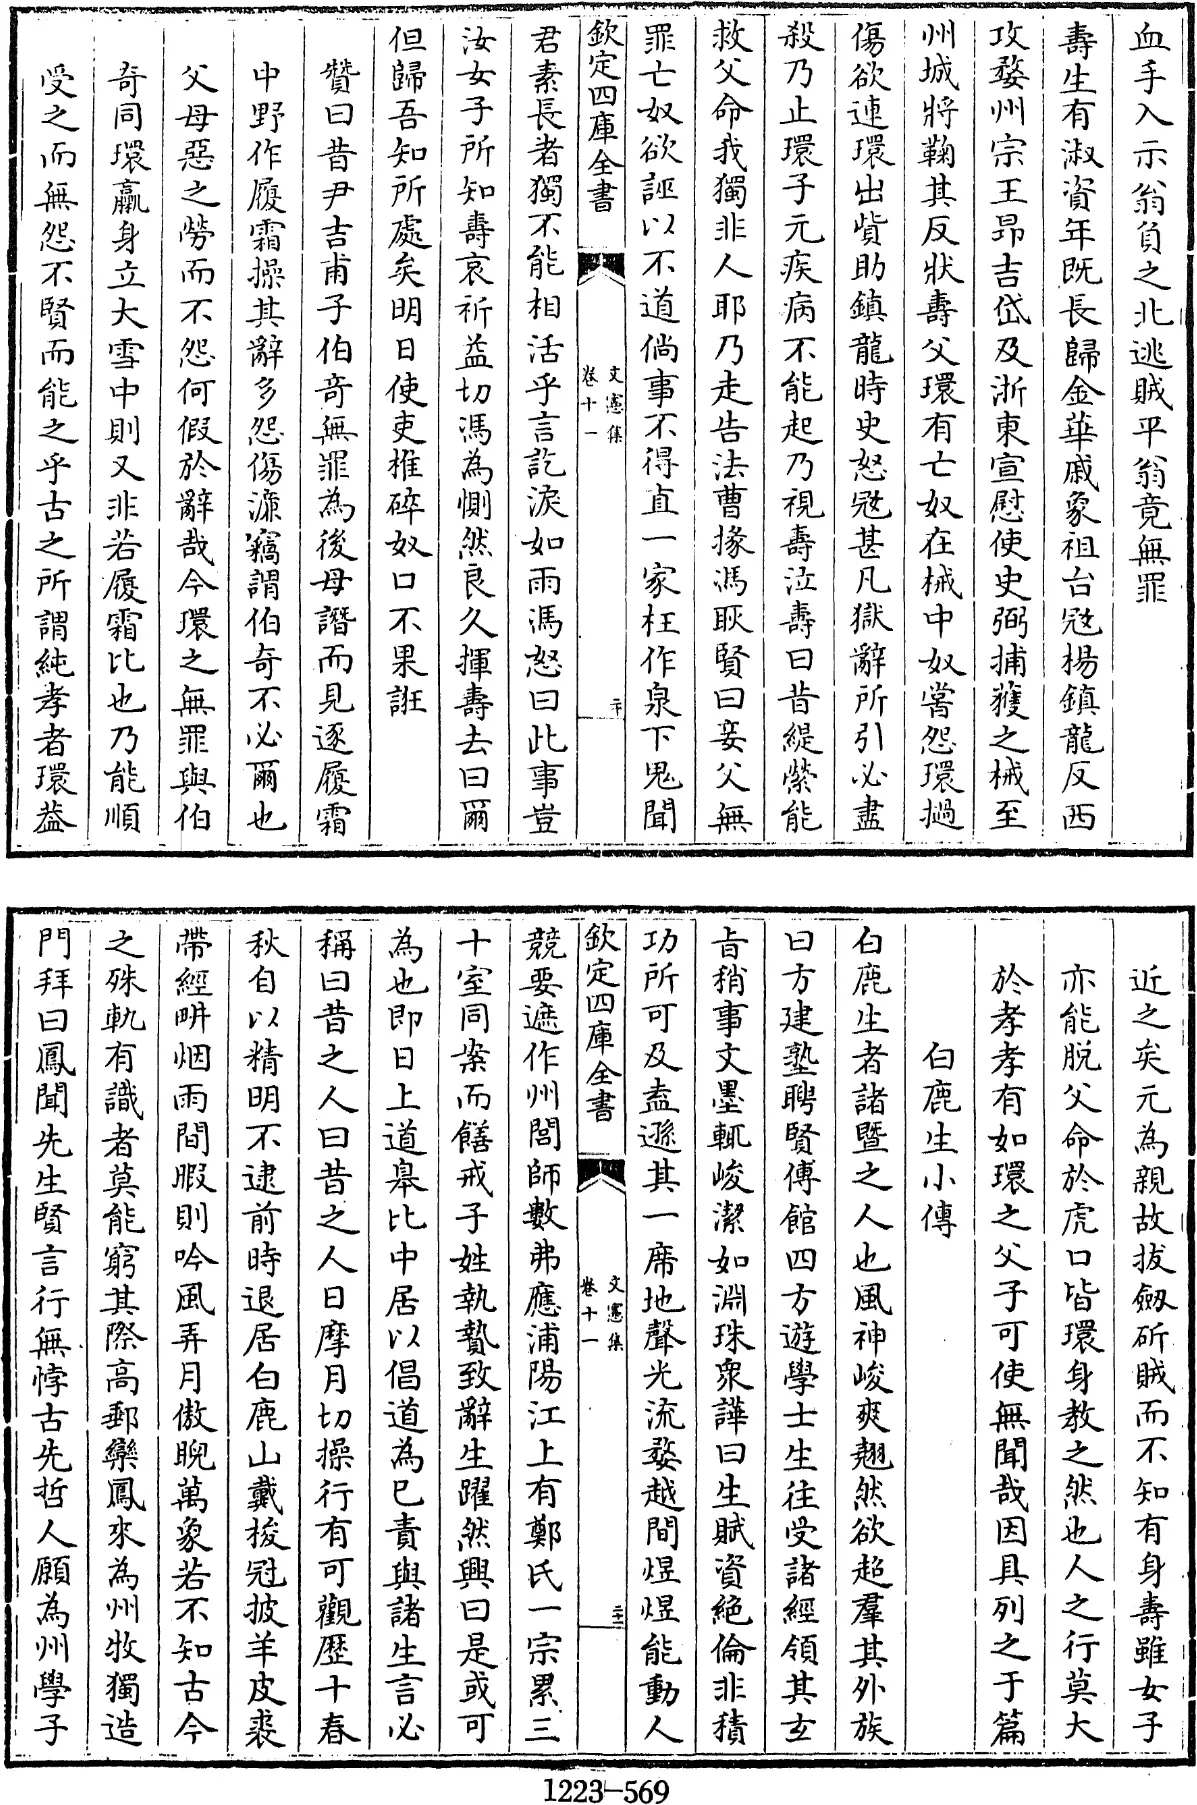 血手入示翁負之北逃賊平翁竟無罪
壽生有淑資年既長歸金華戚象祖台㓂楊鎮龍反西
攻婺州宗王昻吉岱及浙東宣慰使史弼捕獲之械至
州城將鞠其反狀壽父環有亡奴在械中奴嘗怨環撾
傷欲連環出貲助鎮龍時史怒㓂甚凡獄辭所引必盡
殺乃止環子元疾病不能起乃視壽泣壽曰昔緹縈能
救父命我獨非人耶乃走告法曹掾馮耿賢曰妾父無
罪亡奴欲誣以不道倘事不得直一家枉作泉下鬼聞
欽定四庫全書
文憲集
卷十一
二十
君素長者獨不能相活乎言訖淚如雨馮怒曰此事豈
汝女子所知壽哀祈益切馮為惻然良久揮壽去曰爾
但歸吾知所處矣明日使吏椎碎奴口不果誑
贊曰昔尹吉甫子伯奇無罪為後母譖而見逐履霜
中野作履霜操其辭多怨傷濂竊謂伯奇不必爾也
父母惡之勞而不怨何假於辭哉今環之無罪與伯
奇同環羸身立大雪中則又非若履霜比也乃能順
受之而無怨不賢而能之乎古之所謂純孝者環葢
近之矣元為親故拔劔斫賊而不知有身壽雖女子
亦能脱父命於虎口皆環身教之然也人之行莫大
於孝孝有如環之父子可使無聞哉因具列之于篇
白鹿生小傳
白鹿生者諸暨之人也風神峻爽翹然欲超羣其外族
曰方建塾聘賢傅館四方遊學士生往受諸經領其玄
旨稍事文墨輒峻潔如淵珠衆譁曰生賦資絶倫非積
功所可及盍遜其一席地聲光流婺越間煜煜能動人
欽定四庫全書
文憲集
卷十一
二十一
競要遮作州閭師數弗應浦陽江上有鄭氏一宗累三
十室同㸑而饍戒子姓執贄致辭生躍然興曰是或可
為也即日上道皋比中居以倡道為已責與諸生言必
稱曰昔之人曰昔之人日摩月切操行有可觀歴十春
秋自以精明不逮前時退居白鹿山戴棱冠披羊皮裘
帶經畊烟雨間暇則吟風弄月傲睨萬象若不知古今
之殊軌有識者莫能窮其際高郵欒鳳來為州牧獨造
門拜曰鳳聞先生賢言行無悖古先哲人願為州學子
1223-569